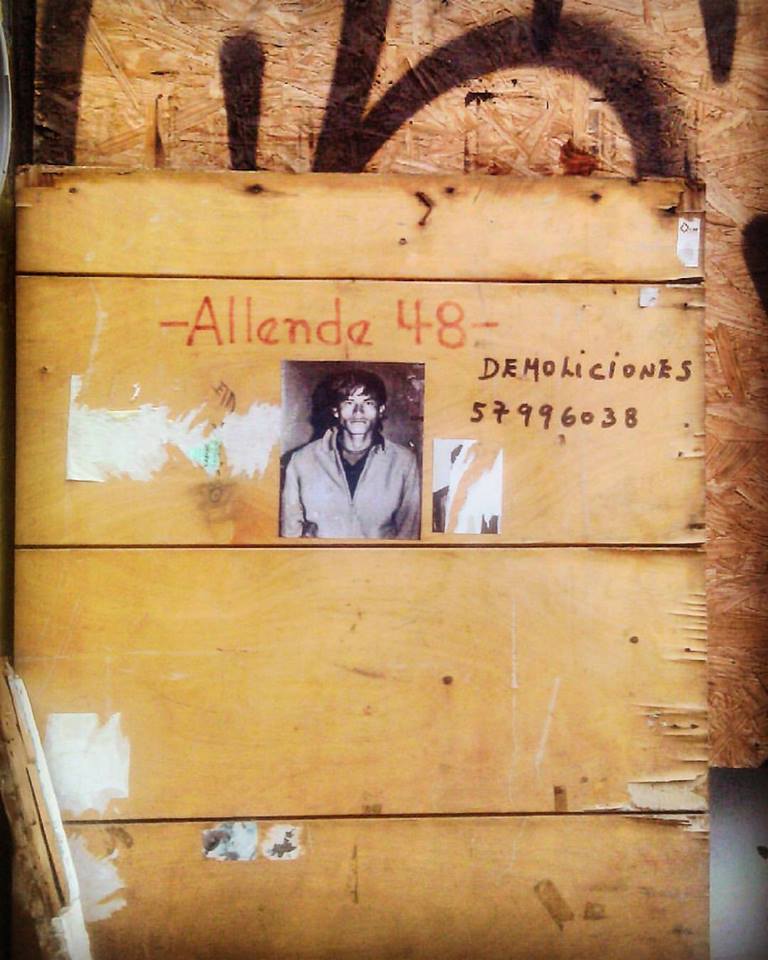 -Allende 48-
DEMOLiCiONES
57996038